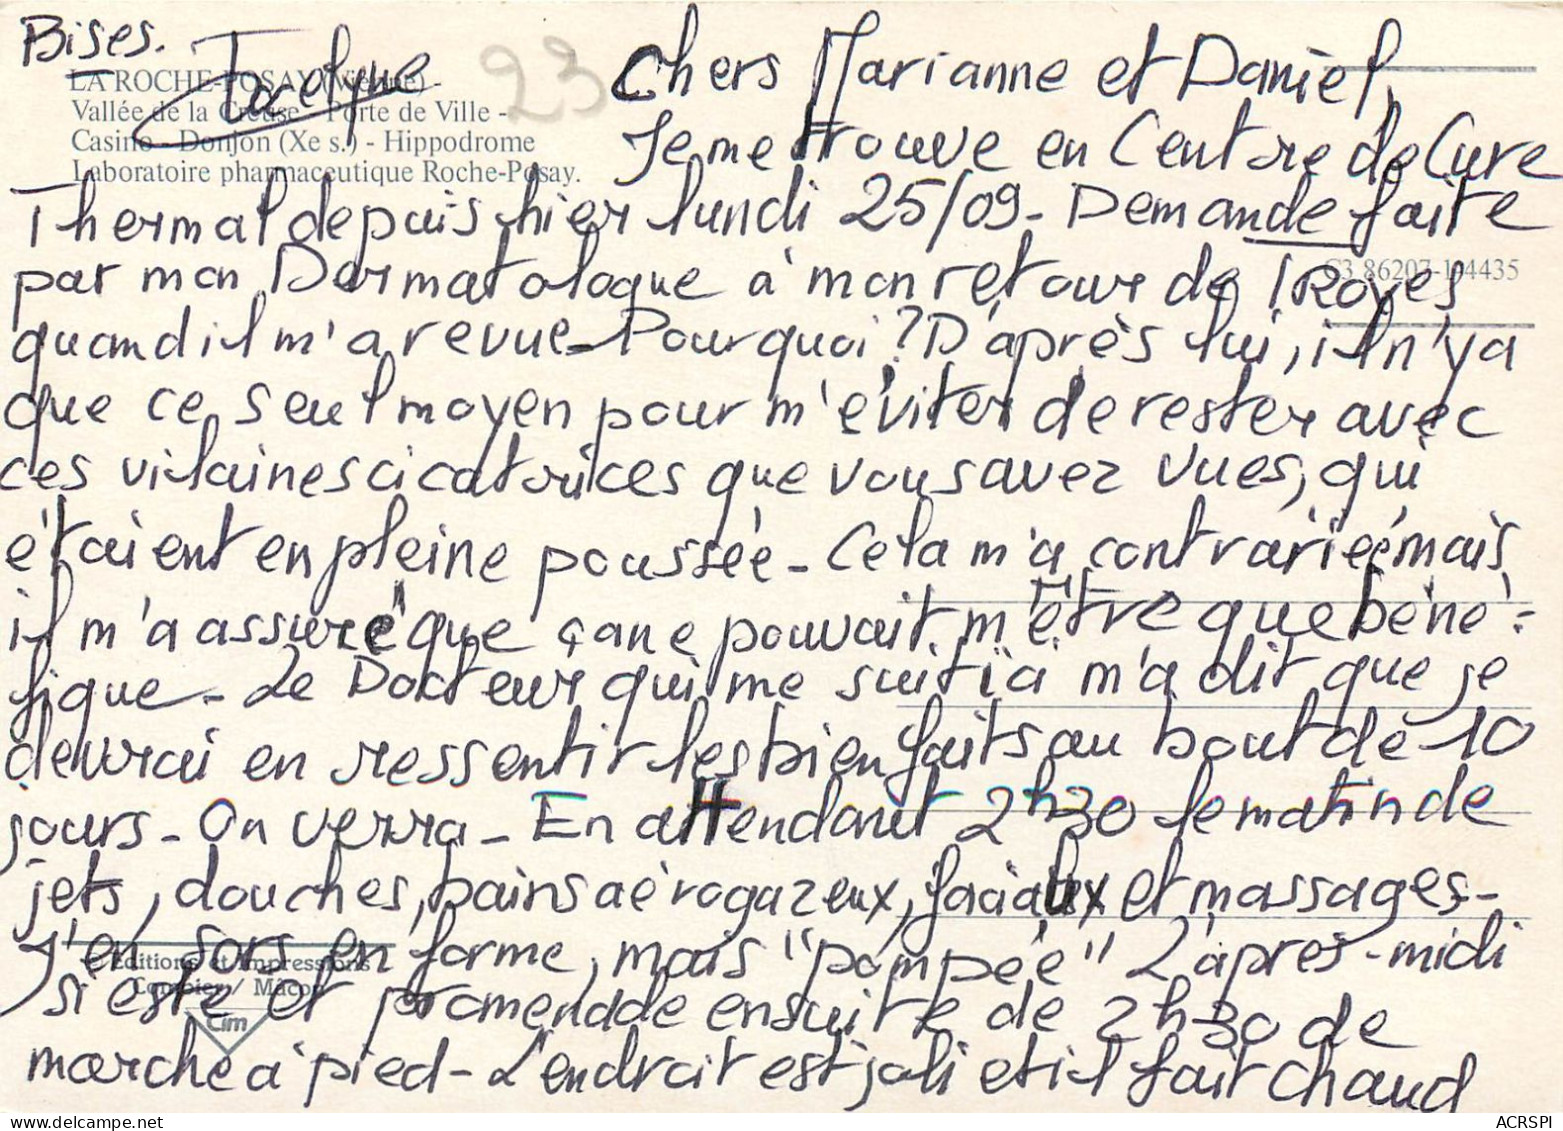 Bises.
Jocelyne
23
LA ROCHE-POSAY (Vienne) -
Vallée de la Creuse - Porte de Ville -
Casino - Donjon (Xe s.) - Hippodrome
Laboratoire pharmaceutique Roche-Posay.
Chers Marianne et Daniel,
Je me trouve en Centre de Cure
Thermal depuis hier lundi 25/09 - Demande faite
par mon Dermatologue à mon retour de
C3 86207-1-4435
quand il m'a revue - Pourquoi? D'après lui, il n'ya
que ce seul moyen pour m'éviter de rester avec
ces vilaines cicatrices que vous avez vues, qui
étaient en pleine poussée - Cela m'a contrariée, mais
il m'a assuré que ça ne pouvait m'être que béné-
fique - Le Docteur qui me suit ici m'a dit que je
devrai en ressentir les bienfaits au bout de 10
jours - On verra - En attendant 2h30 le matin de
jets, douches, bains aérogazeux, faciaux et massages -
J'en sors en forme, mais "pompée" L'après-midi
© Editions et Impressions
Combier / Mâcon
Cim
sieste et promenade ensuite de 2h30 de
marche à pied - L'endroit est joli et il fait chaud
ACRSPI